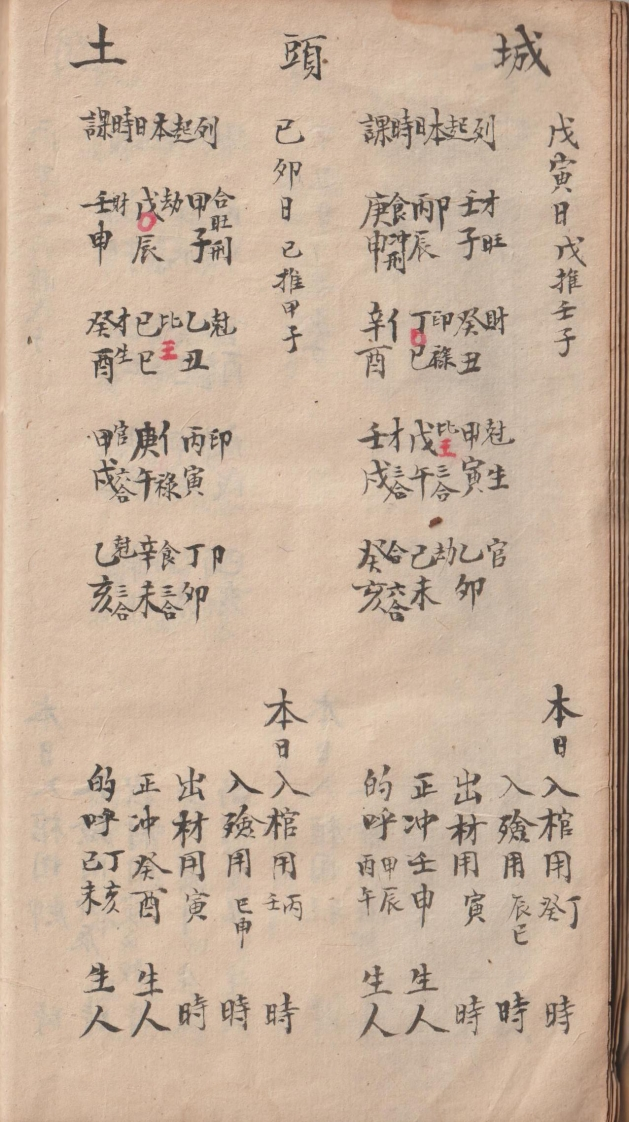 城頭土
戊寅日戊推壬子
列起本日時課
壬子才旺
癸丑財
甲寅尅生
乙卯官
丙辰卩
丁巳印祿
戊午比王三合
己未劫
庚申食冲刑
辛酉亻
壬戌才三合
癸亥合六合
本日入棺用丁癸時
入殮用辰巳時
出材用寅時
正冲壬申生人
的呼甲辰丙午生人
己卯日己推甲子
列起本日時課
甲子合旺刑
乙丑尅
丙寅印
丁卯卩
戊辰劫
己巳比王
庚午亻祿
辛未食三合
壬申財
癸酉才生
甲戌官六合
乙亥尅三合
本日入棺用丙壬時
入殮用巳申時
出材用寅時
正冲癸酉生人
的呼丁亥己未生人